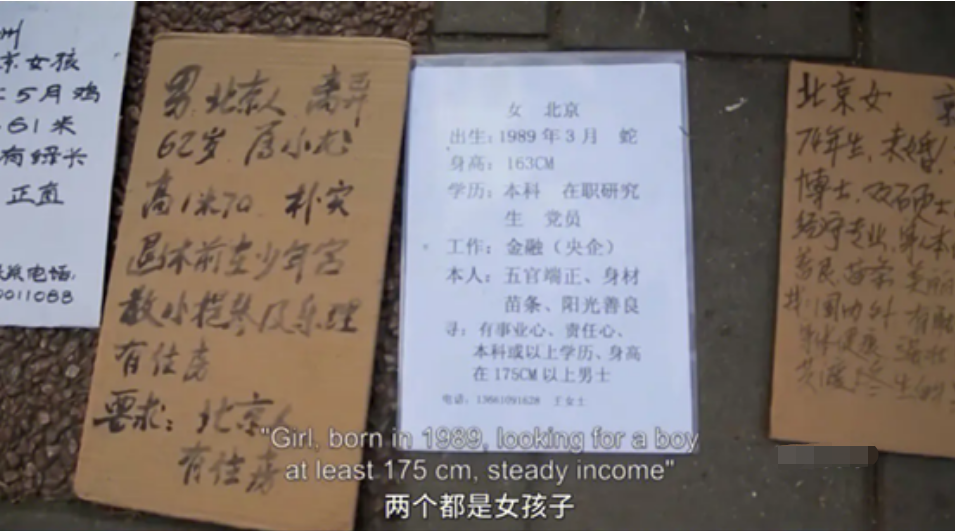 州
京女孩
5月鸡
.61米
正直
电话:
0011088
男.北京人 离异
62岁.属小龙
高1米70. 朴实
退休前在少年宫
教小提琴及乐理
有住房
要求：北京人
有住房
女 北京
出生：1989年3月 蛇
身高：163CM
学历：本科 在职研究
生 党员
工作：金融（央企）
本人：五官端正、身材
苗条、阳光善良
寻：有事业心、责任心、
本科或以上学历、身高
在175CM以上男士
电话：13661091628 王女士
北京女
74年生，未婚！
博士，双硕士
善良 苗条 美丽
找：国内外 有
身体健康
"Girl, born in 1989, looking for a boy
at least 175 cm, steady income"
两个都是女孩子